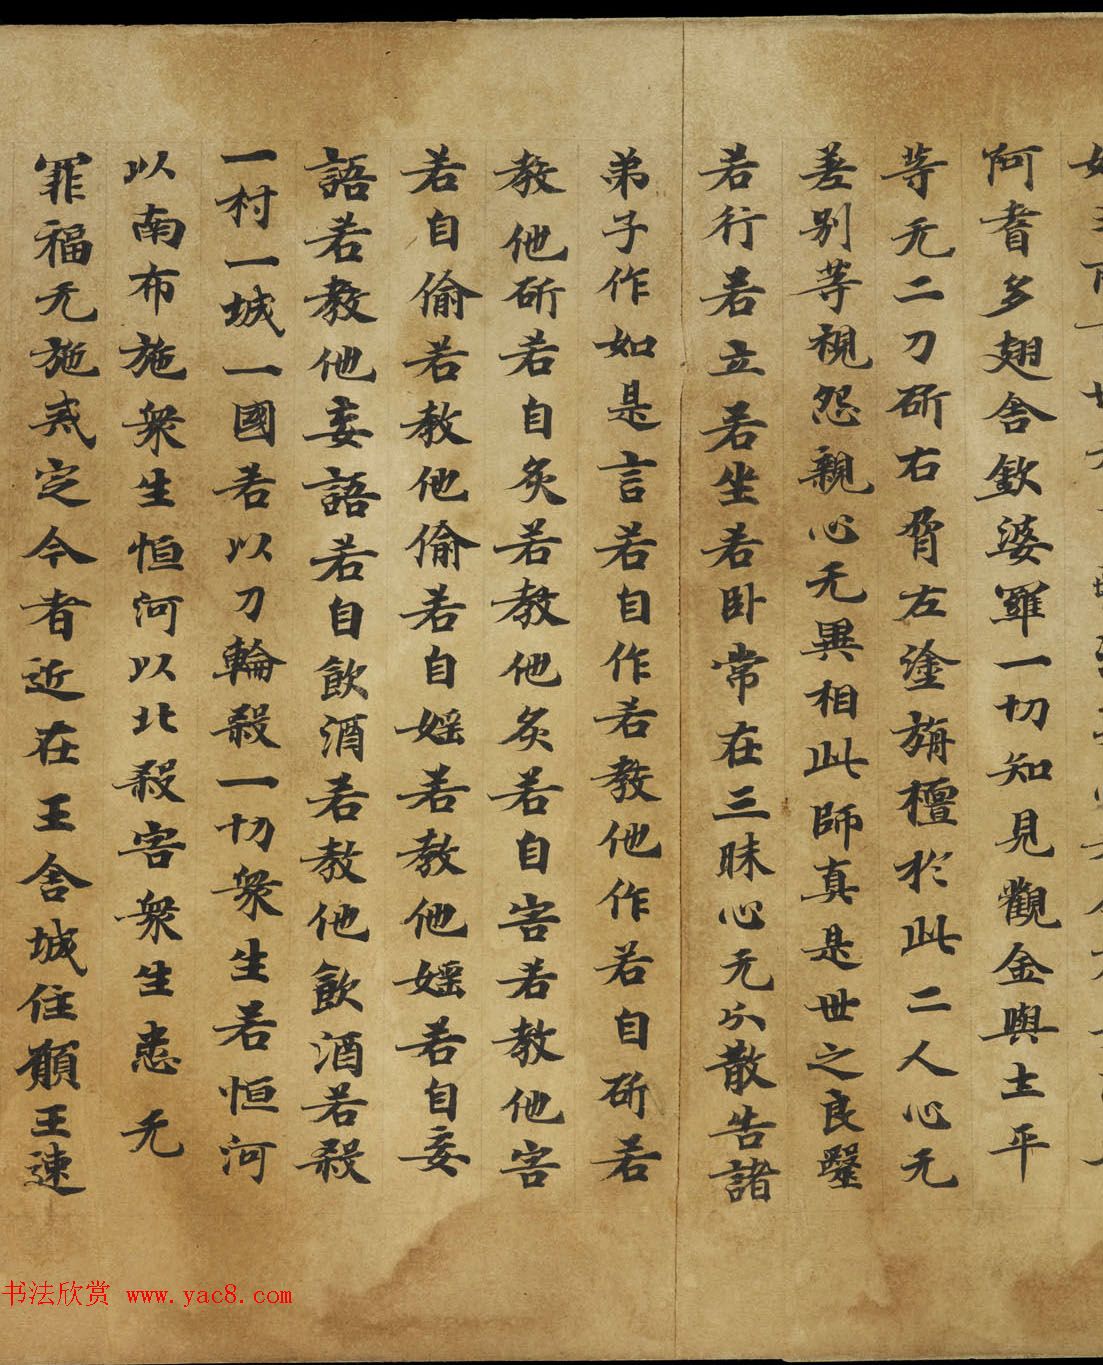 阿耆多翅舍欽婆羅一切知見觀金與土平
等无二刀斫右脅左塗旃檀於此二人心无
差别等視怨親心无異相此師真是世之良毉
若行若立若坐若卧常在三昧心无分散告諸
弟子作如是言若自作若教他作若自斫若
教他斫若自炙若教他炙若自害若教他害
若自偷若教他偷若自婬若教他婬若自妄
語若教他妄語若自飲酒若教他飲酒若殺
一村一城一國若以刀輪殺一切衆生若恒河
以南布施衆生恒河以北殺害衆生悉无
罪福无施戒定今者近在王舍城住願王速
书法欣赏 www.yac8.com